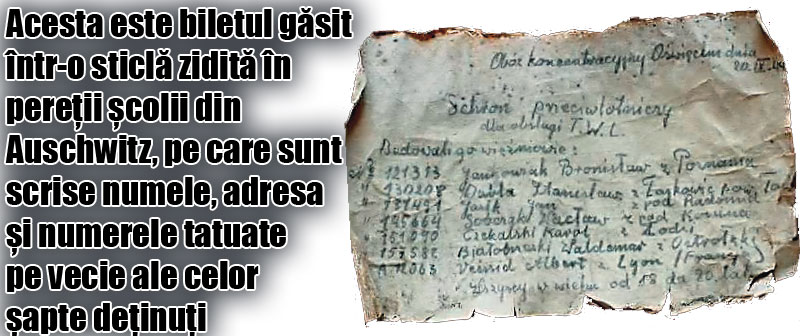 Acesta este biletul găsit
într-o sticlă zidită în
pereții școlii din
Auschwitz, pe care sunt
scrise numele, adresa
și numerele tatuate
pe vecie ale celor
șapte deținuți
Obóz koncentracyjny Oświęcim dnia
20.IX.44
Schron przeciwlotniczy
dla obsługi T.W.L.
Budowali go więźniowie:
121313 Jankowiak Bronisław z Poznania
130208 Dubla Stanisław z Łaskowic
131491 Jasik Jan z pod Radomia
145664 Sobczak Wacław z pod Konina
151090 Czekalski Karol z Łodzi
157582 Białobrzeski Waldemar z Ostrołęki
A12063 Veissid Albert z Lyon (Francja)
Wszyscy w wieku od 18 do 20 lat